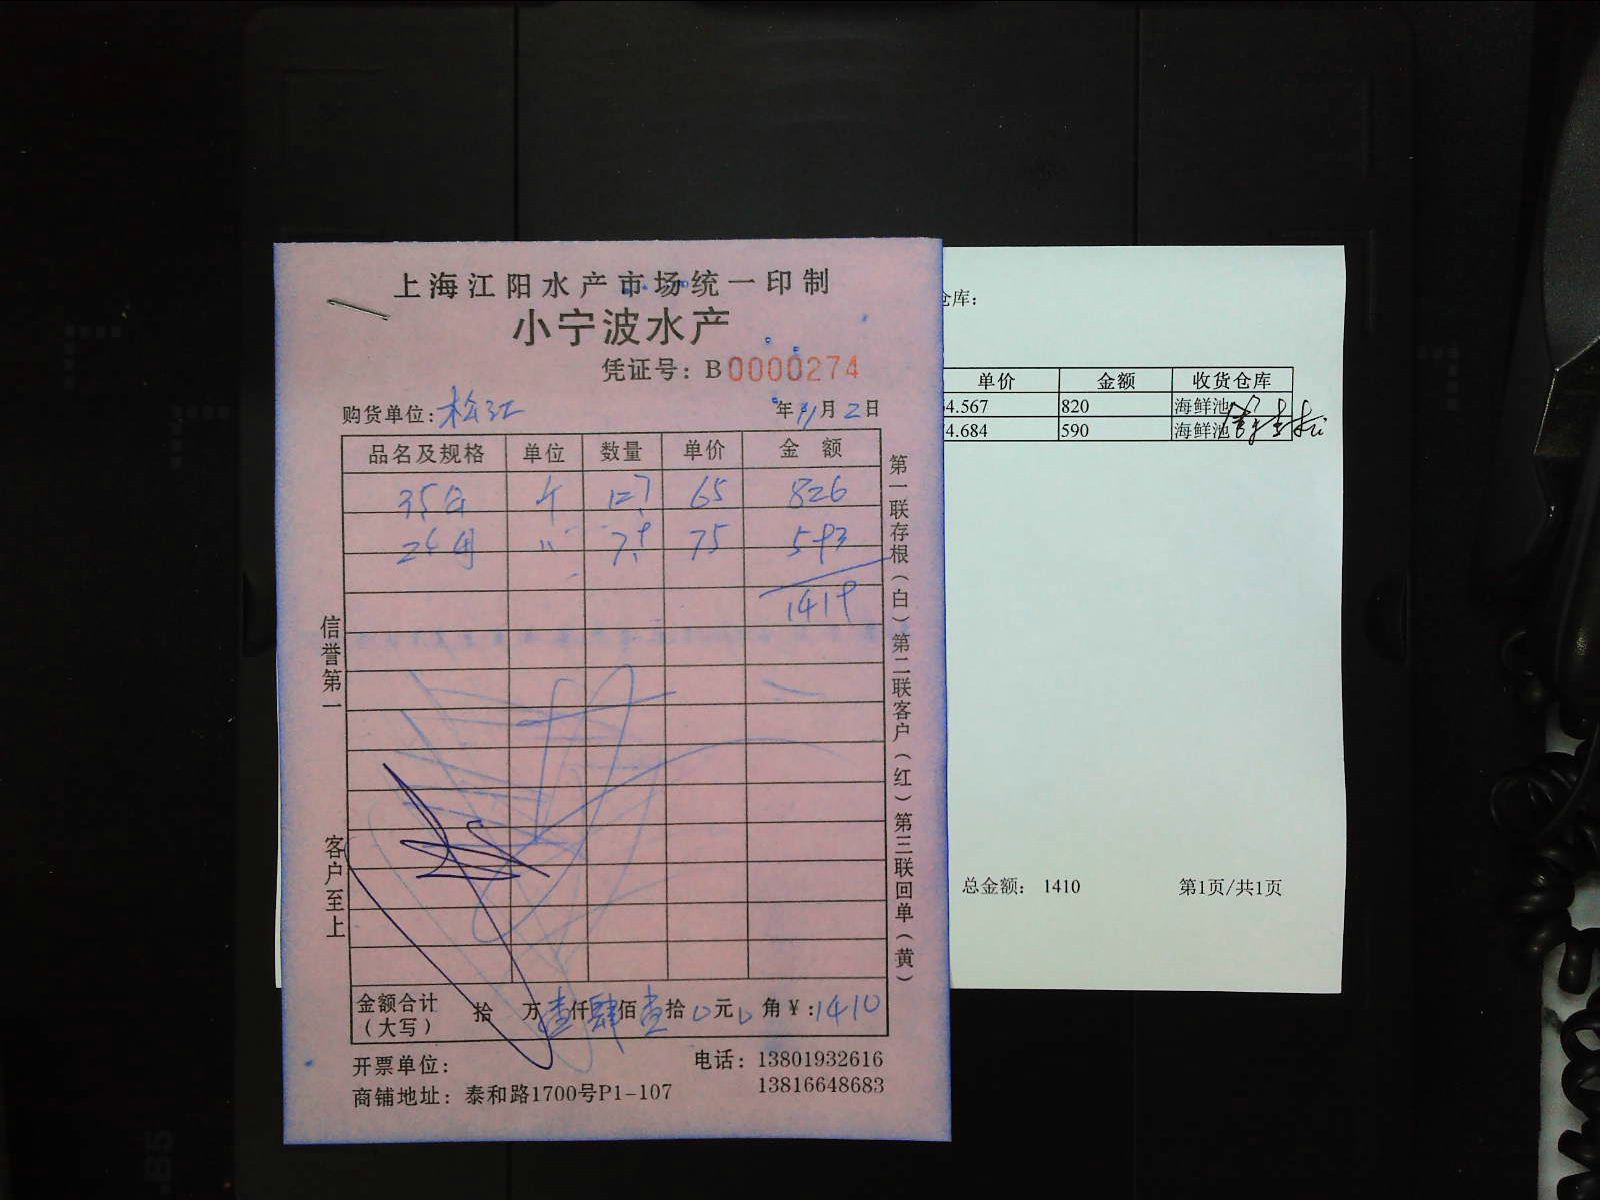 上海江阳水产市场统一印制
小宁波水产
凭证号：B0000274
购货单位：松江 年11月2日
品名及规格 单位 数量 单价 金额
65 826
75 593
1419
信誉第一
客户至上
第一联存根（白）第二联客户（红）第三联回单（黄）
金额合计（大写） 拾 万壹仟肆佰壹拾0元0角¥：1410
开票单位： 电话：13801932616
13816648683
商铺地址：泰和路1700号P1-107
仓库：
单价 金额 收货仓库
4.567 820 海鲜池
4.684 590 海鲜池
总金额： 1410 第1页/共1页